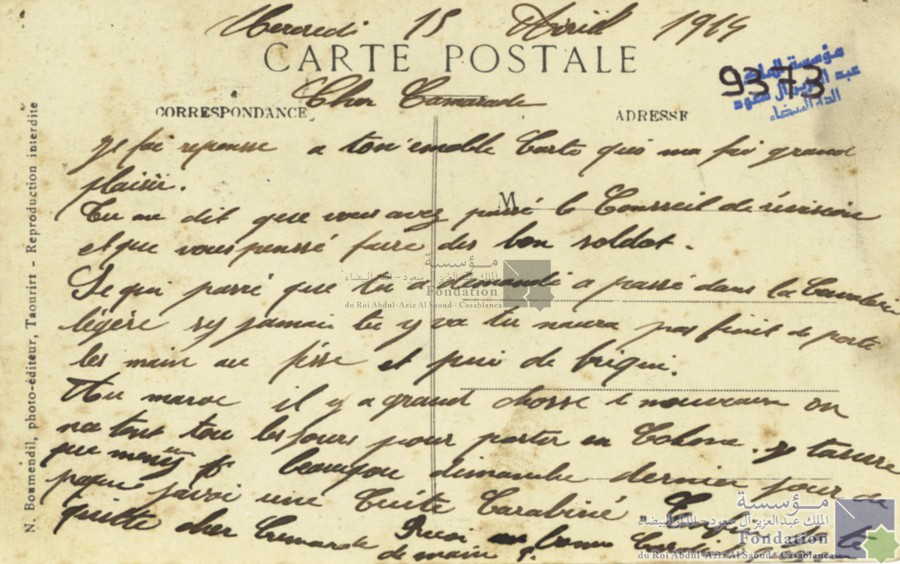 Mercredi 15 Avril 1914
CARTE POSTALE
9373
مؤسسة الملك
عبد العزيز آل سعود
الدار البيضاء
Cher Camarade
CORRESPONDANCE
ADRESSE
N. Boumendil, photo-éditeur, Taourirt - Reproduction interdite
M
Je fai reponse a ton emable Carte qui ma fai grand
plaisir.
Tu me dit que vous avez passé le Conseil de révision
et que vous pensé faire des bon soldat.
Se qui parré que tu a demandé a passé dans la Cavalerie
légère sy jamais tu y va tu naura pas finit de porté
les main au et puis de briqui.
Au maroc il y a grand chosse de nouveau on
tout tou les jours pour partir en Colone. y tassure
que beaucou dimanche dernier jour de
paque une Cuite Carabiné
quitte cher Camarade Recoi une bonne
de main
مؤسسة
الملك عبد العزيز آل سعود - الدار البيضاء
Fondation
du Roi Abdul-Aziz Al Saoud - Casablanca
مؤسسة
الملك عبد العزيز آل سعود - الدار البيضاء
Fondation
du Roi Abdul-Aziz Al Saoud - Casablanca